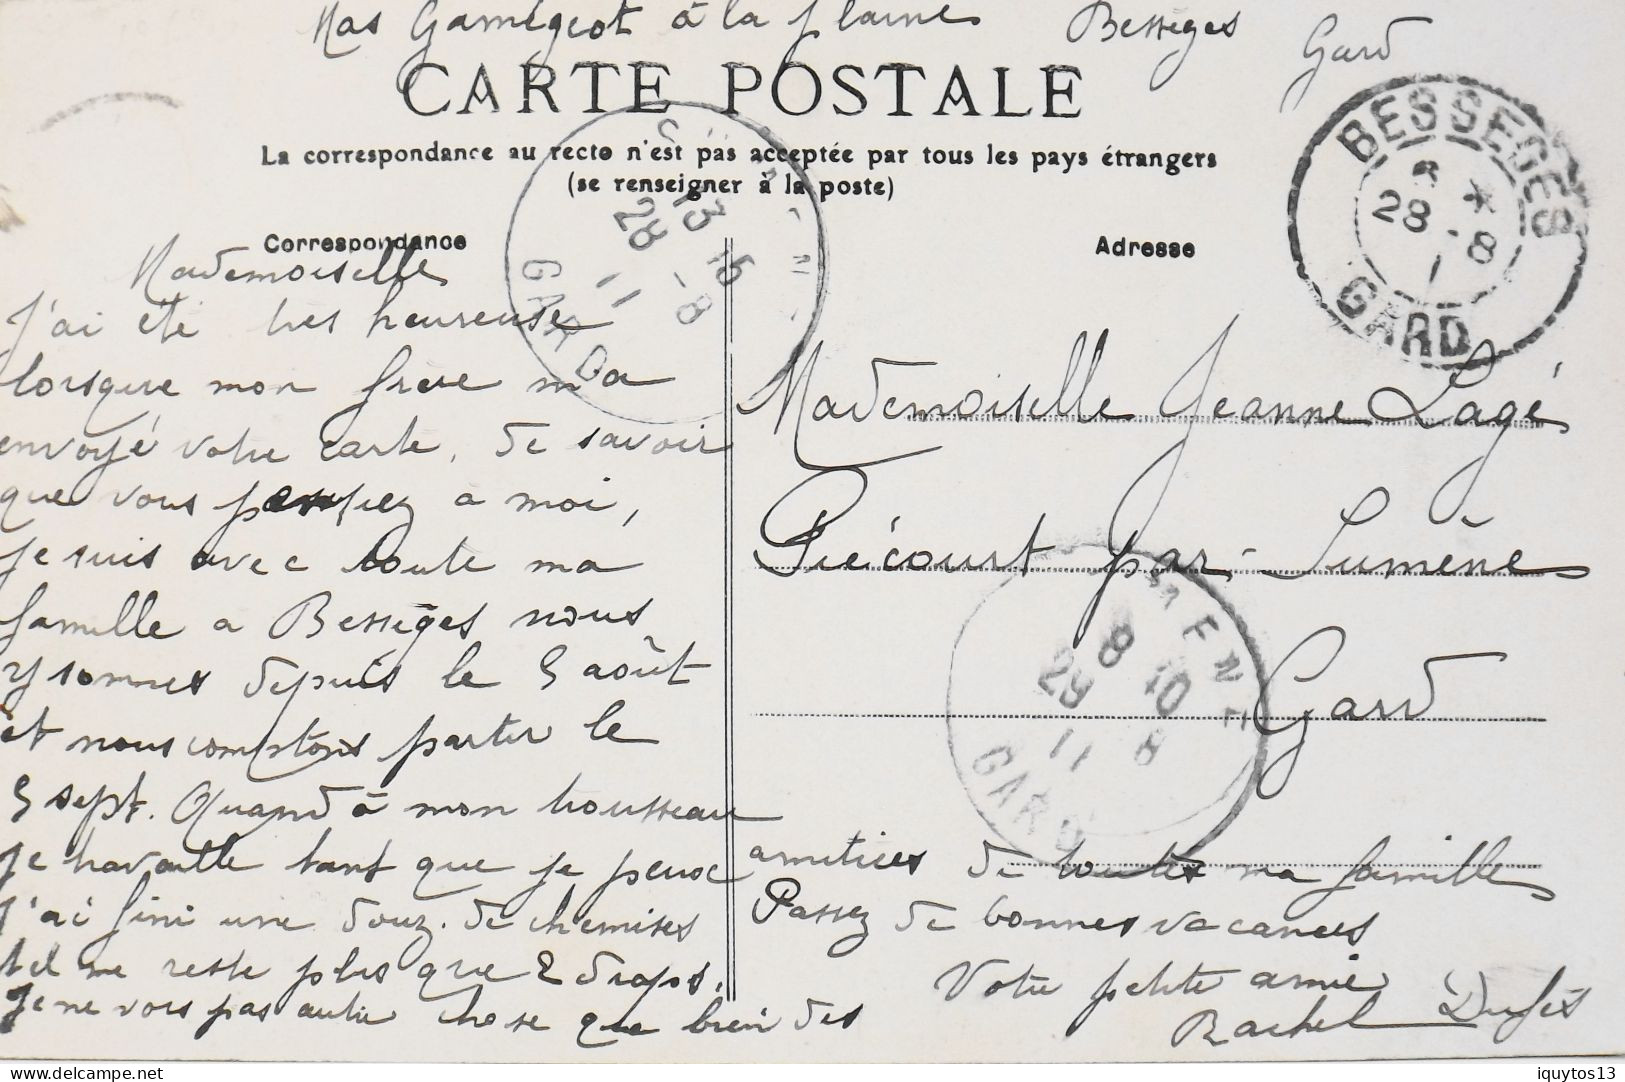 Mas Gamégeot à la plaine Bessèges Gard
CARTE POSTALE
La correspondance au recto n'est pas acceptée par tous les pays étrangers
(se renseigner à la poste)
Correspondance
Adresse
BESSEGES
28 - 8
GARD
13 15
28 - 8
11
GARD
Mademoiselle
J'ai été tres heureuse
lorsque mon frere m a
envoyé votre carte, de savoir
que vous pensiez a moi,
je suis avec toute ma
famille a Bessèges nous
y sommes depuis le 5 août
et nous comptons partir le
5 sept. Quand à mon trousseau
je travaille tant que je peux
J'ai fini une douz. de chemises
il me reste plus que 2 draps.
Je ne vois pas autre chose que bien des
amitiées de toutes ma famille
Passez de bonnes vacances
Votre petite amie
Rachel
Mademoiselle Jeanne Lagé
Piécourt par Sumène
Gard
8 10
29 8
11
GARD
26/02/2024 iquytos13